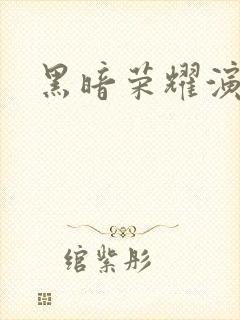 黑暗荣耀演
绾紫彤